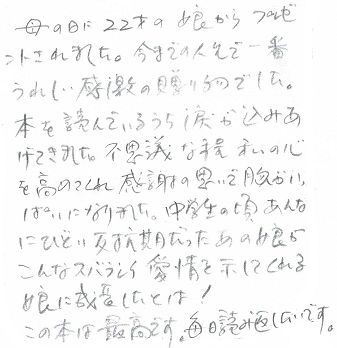 母の日に22才の娘からプレゼ
ントされました。今までの人生で一番
うれしい感激の贈り物でした。
本を読んでいるうち涙が込みあ
げてきました。不思議な程 私の心
を高めてくれ感謝の思いで胸がい
ぱいになりました。中学生の頃あんな
にひどい反抗期だったあの娘が
こんなスバラシイ愛情を示してくれる
娘に成長したとは!
この本は最高です。毎日読み返したいです。